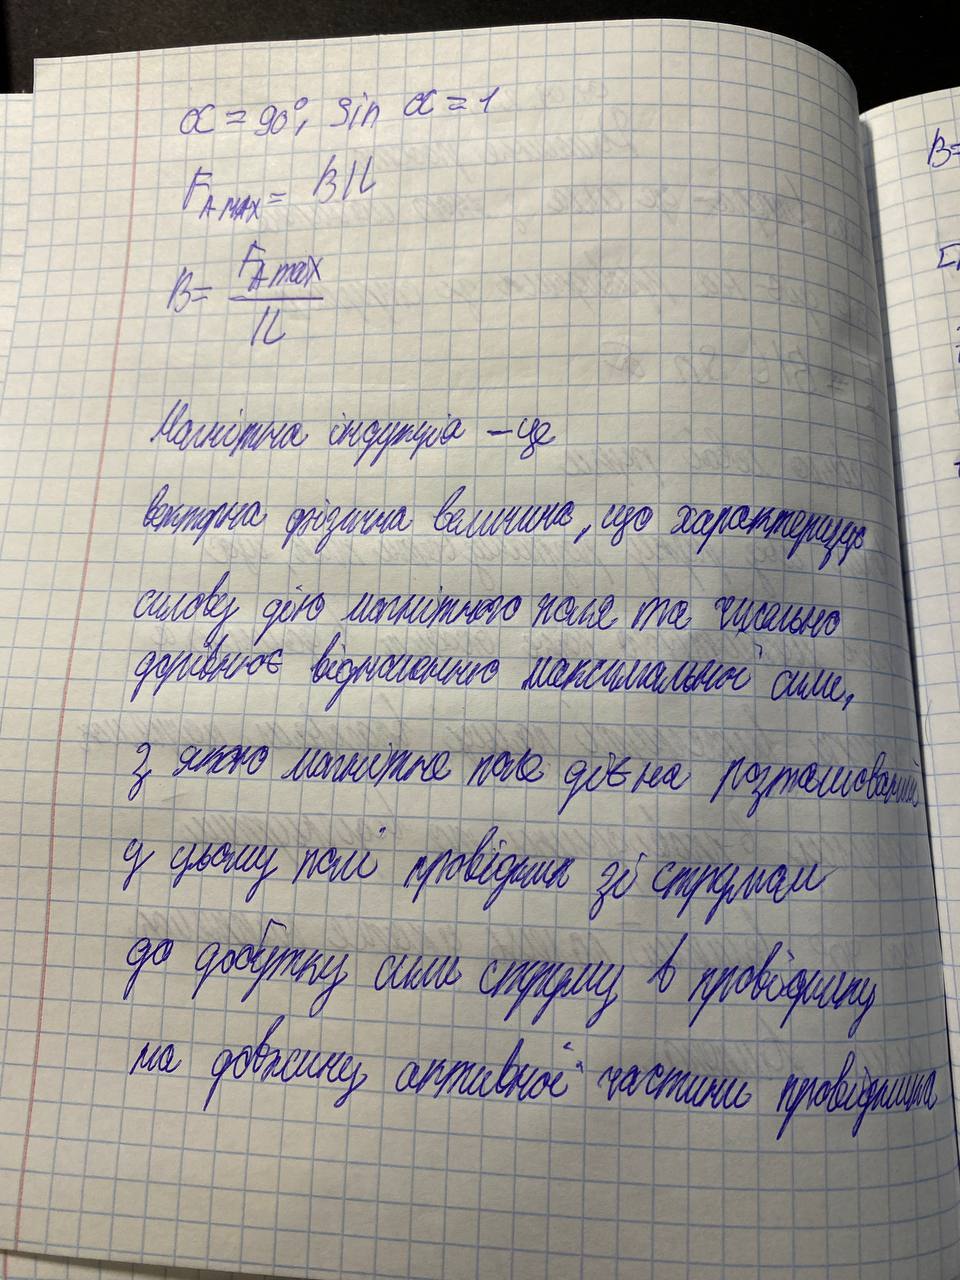 α = 90°, sin α = 1
F A MAX = BIL
B = F A max / IL
Магнітна індукція – це
векторна фізична величина, що характеризує
силову дію магнітного поля та чисельно
дорівнює відношенню максимальної сили,
з якою магнітне поле діє на розташований
у цьому полі провідник зі струмом
до добутку сили струму в провіднику
на довжину активної частини провідника
B=